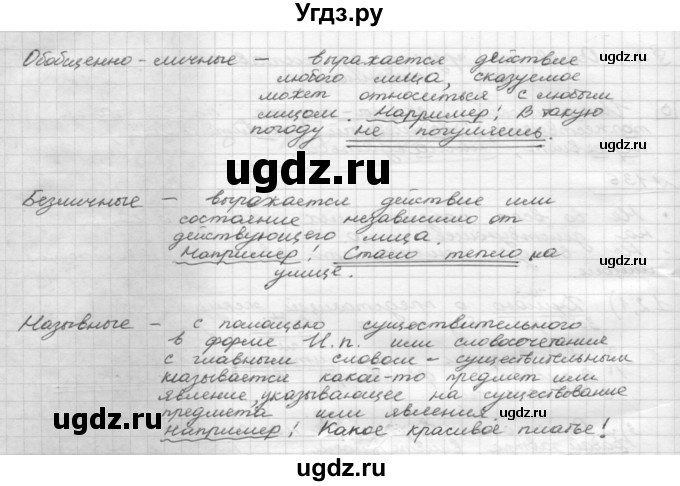 Угдз.ру
Обобщенно-личные — выражается действие
любого лица, сказуемое
может относиться с любым
лицом. Например! В такую
погоду не погуляешь.
Безличные — выражается действие или
состояние независимо от
действующего лица.
Например! Стало тепло на
улице.
Назывные — с помощью существительного
в форме И.п. или словосочетания
с главным словом - существительным
называется какой-то предмет или
явление, указывающее на существование
предмета или явления
Например! Какое красивое платье!
ugdz.ru
ugdz.ru
ugdz.ru
ugdz.ru
ugdz.ru
ugdz.ru
ugdz.ru
ugdz.ru